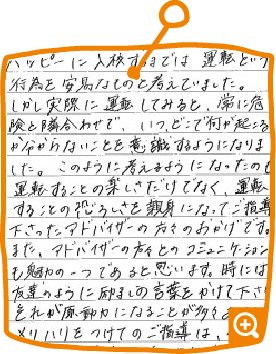 ハッピーに入校するまでは 運転という
行為を容易なものと考えていました。
しかし実際に運転してみると、常に危
険と隣合わせで、いつ、どこで何が起こる
か分からないことを意識するようになりま
した。このように考えるようになったのも
運転することの楽しさだけでなく、運転
することの恐ろしさを親身になってご指導
下さったアドバイザーの方々のおかげです。
また、アドバイザーの方々とのコミュニケーション
も魅力の一つであると思います。時には
友達のように励ましの言葉をかけて下さ
それが原動力になることが多々
メリハリをつけてのご指導は、